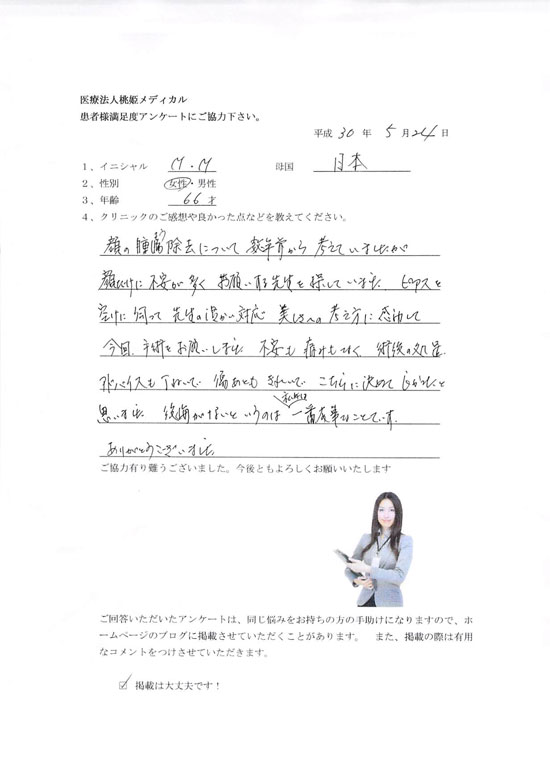 医療法人桃姫メディカル
患者様満足度アンケートにご協力下さい。
平成 30 年 5 月 24 日
1、イニシャル M・M 母国 日本
2、性別 女性・男性
3、年齢 66才
4、クリニックのご感想や良かった点などを教えてください。
顔の腫瘍除去について 数年前から 考えていましたが
顔だけに 不安が多く お願いする先生を探していました ピアスを
空けに 伺って 先生の温かい対応 美しさへの 考え方に 感動して
今回 手術をお願いしました 不安も 痛みもなく 術後の処置
アドバイスも丁ねいで 傷あとも きれいで こちらに決めて 良かったと
思いました 後悔がないというのは 私には 一番大事なことです。
ありがとうございました
ご協力有り難うございました。今後ともよろしくお願いいたします
ご回答いただいたアンケートは、同じ悩みをお持ちの方の手助けになりますので、ホ
ームページのブログに掲載させていただくことがあります。 また、掲載の際は有用
なコメントをつけさせていただきます。
☑ 掲載は大丈夫です！